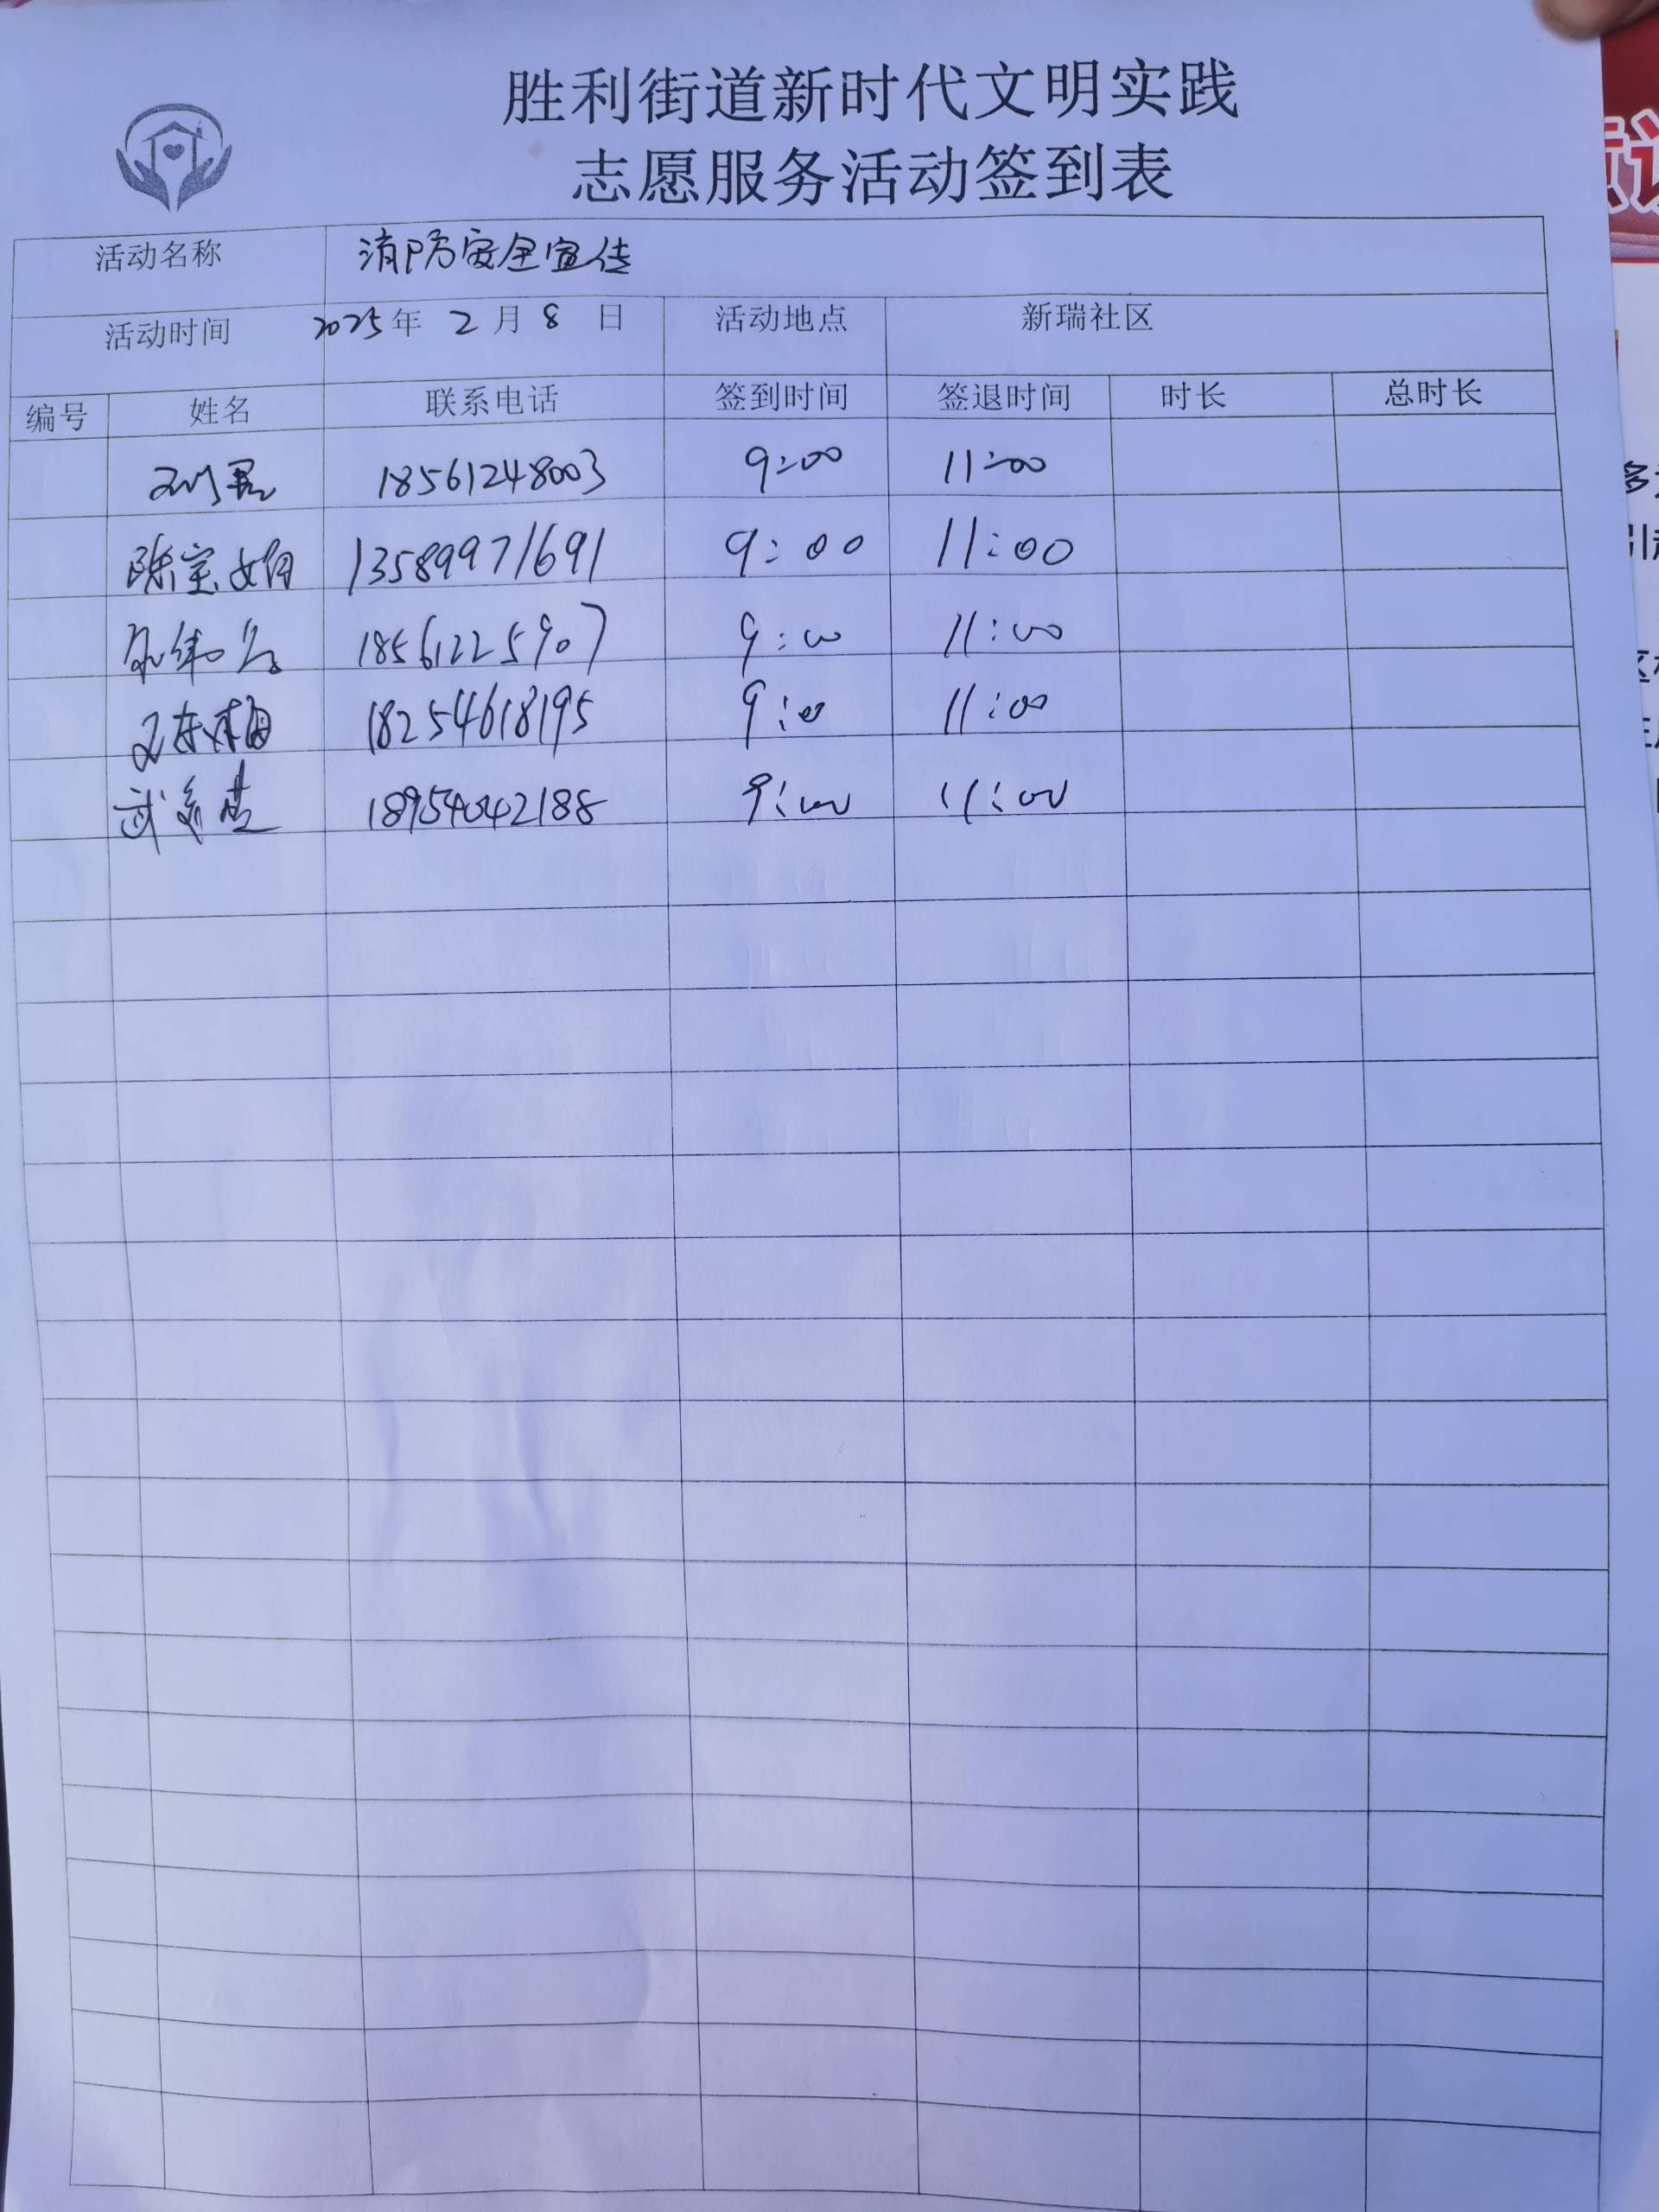 胜利街道新时代文明实践
志愿服务活动签到表
活动名称 消防安全宣传
活动时间 2025年 2 月 8 日 活动地点 新瑞社区
编号 姓名 联系电话 签到时间 签退时间 时长 总时长
18561248003 9:00 11:00
陈宝娟 13589971691 9:00 11:00
18561225907 9:00 11:00
18254618195 9:00 11:00
武 18954042188 9:00 11:00